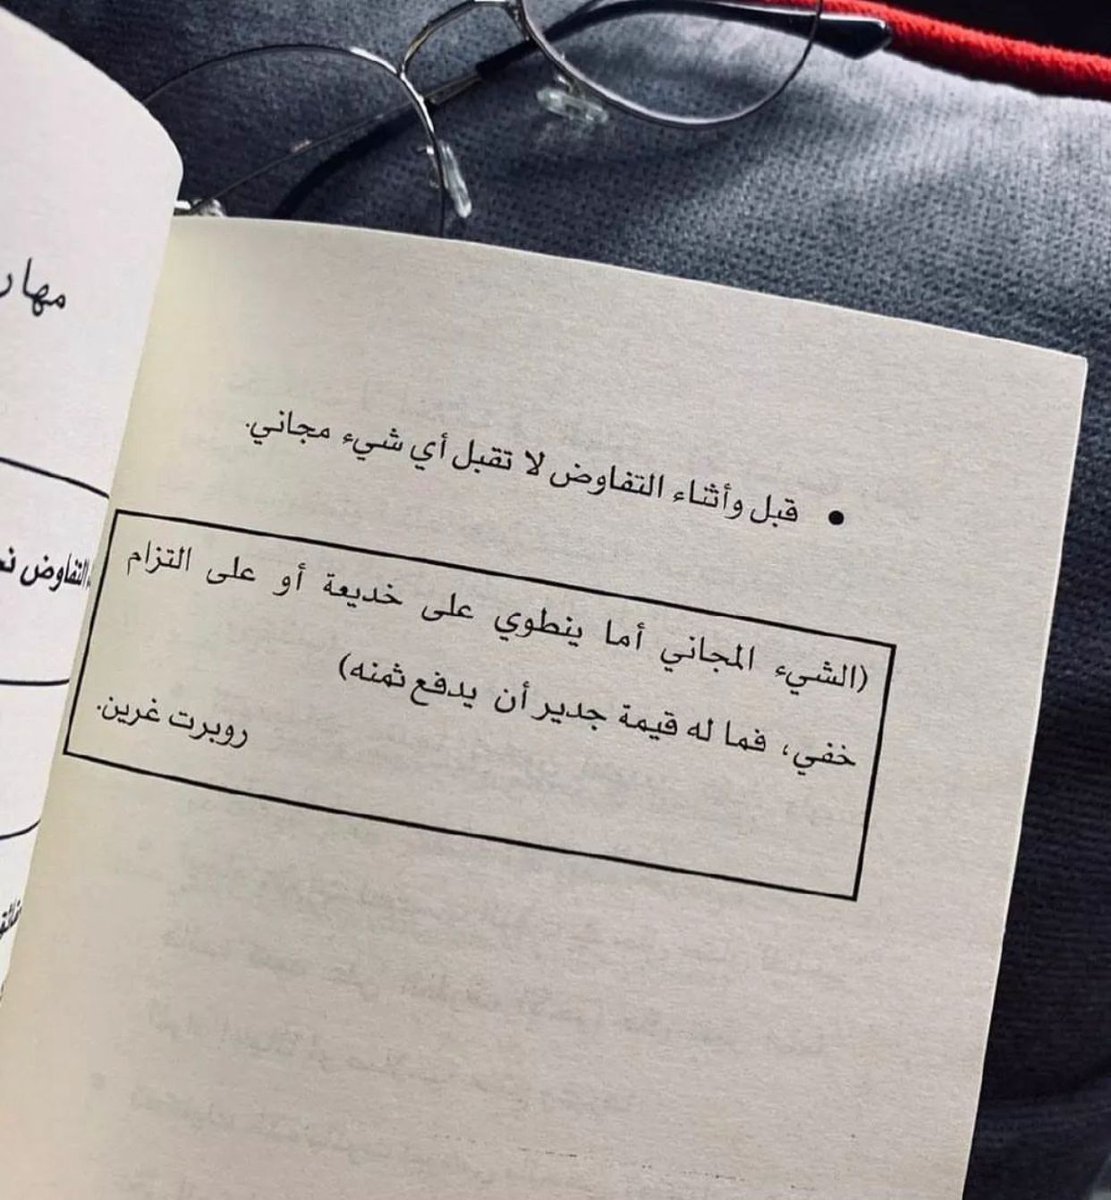 مهار
التفاوض
• قبل وأثناء التفاوض لا تقبل أي شيء مجاني.
(الشيء المجاني أما ينطوي على خديعة أو على التزام
خفي، فما له قيمة جدير أن يدفع ثمنه)
روبرت غرين.